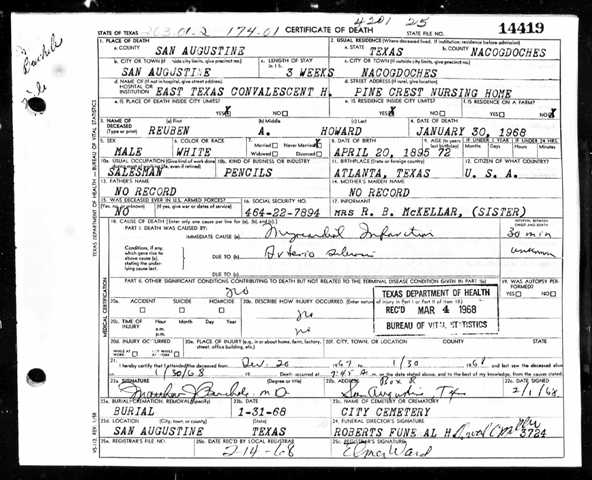 4201 25
STATE OF TEXAS 174.01 CERTIFICATE OF DEATH STATE FILE NO. 14419
1. PLACE OF DEATH
a. COUNTY SAN AUGUSTINE
2. USUAL RESIDENCE (Where deceased lived. If institution: residence before admission)
a. STATE TEXAS b. COUNTY NACOGDOCHES
b. CITY OR TOWN (If outside city limits, give precinct no.) SAN AUGUSTINE
c. LENGTH OF STAY 3 WEEKS
c. CITY OR TOWN (If outside city limits, give precinct no.) NACOGDOCHES
d. NAME OF (If not in hospital, give street address) HOSPITAL OR INSTITUTION EAST TEXAS CONVALESCENT H.
d. STREET ADDRESS (If rural, give location) PINE CREST NURSING HOME
e. IS PLACE OF DEATH INSIDE CITY LIMITS? YES X NO
e. IS RESIDENCE INSIDE CITY LIMITS? YES X NO
f. IS RESIDENCE ON A FARM? YES NO X
3. NAME OF DECEASED (Type or print) (a) First REUBEN (b) Middle A. (c) Last HOWARD
4. DATE OF DEATH JANUARY 30, 1968
5. SEX MALE
6. COLOR OR RACE WHITE
7. Married Never Married X Widowed Divorced
8. DATE OF BIRTH APRIL 20, 1895
9. AGE 72
IF UNDER 1 YEAR Months Days IF UNDER 24 HRS. Hours Min.
10a. USUAL OCCUPATION (Give kind of work done during most of working life, even if retired) SALESMAN
10b. KIND OF BUSINESS OR INDUSTRY PENCILS
11. BIRTHPLACE (State or foreign country) ATLANTA, TEXAS
12. CITIZEN OF WHAT COUNTRY? U. S. A.
13. FATHER'S NAME NO RECORD
14. MOTHER'S MAIDEN NAME NO RECORD
15. WAS DECEASED EVER IN U.S. ARMED FORCES? (Yes, no, or unknown) (If yes, give war or dates of service) NO
16. SOCIAL SECURITY NO. 464-22-7894
17. INFORMANT MRS R. B. MCKELLAR, (SISTER)
18. CAUSE OF DEATH [Enter only one cause per line for (a), (b), and (c).]
PART I. DEATH WAS CAUSED BY:
INTERVAL BETWEEN ONSET AND DEATH
IMMEDIATE CAUSE (a) Myocardial Infarction 30 min
Conditions, if any, which gave rise to above cause (a), stating the underlying cause last.
DUE TO (b) unknown
DUE TO (c)
PART II. OTHER SIGNIFICANT CONDITIONS CONTRIBUTING TO DEATH BUT NOT RELATED TO THE TERMINAL DISEASE CONDITION GIVEN IN PART I(a)
no
19. WAS AUTOPSY PERFORMED? YES NO
20a. ACCIDENT SUICIDE HOMICIDE
20b. DESCRIBE HOW INJURY OCCURRED. (Enter nature of injury in Part I or Part II of item 18.)
no
TEXAS DEPARTMENT OF HEALTH
REC'D MAR 4 1968
BUREAU OF VITAL STATISTICS
20c. TIME OF INJURY Hour Month Day Year a.m. p.m.
20d. INJURY OCCURRED WHILE AT WORK NOT WHILE AT WORK
20e. PLACE OF INJURY (e.g., in or about home, farm, factory, street, office building, etc.)
20f. CITY, TOWN, OR LOCATION COUNTY STATE
21. I hereby certify that I attended the deceased from Dec. 20 1967 1/30 1968 and last saw the deceased alive on 1/30/68 Death occurred at 7:45 on the date stated above, and to the best of my knowledge, from the causes stated.
22a. SIGNATURE (Degree or title) M D
22b. ADDRESS Box 8 San Augustine Tx
22c. DATE SIGNED 2/1/68
23a. BURIAL, CREMATION, REMOVAL (Specify) BURIAL
23b. DATE 1-31-68
23c. NAME OF CEMETERY OR CREMATORY CITY CEMETERY
23d. LOCATION (City, town, or county) (State) SAN AUGUSTINE TEXAS
24. FUNERAL DIRECTOR'S SIGNATURE ROBERTS FUNE AL H 3724
25a. REGISTRAR'S FILE NO.
25b. DATE REC'D BY LOCAL REGISTRAR 2-14-68
25c. REGISTRAR'S SIGNATURE Elmer Ward
TEXAS DEPARTMENT OF HEALTH — BUREAU OF VITAL STATISTICS
MEDICAL CERTIFICATION